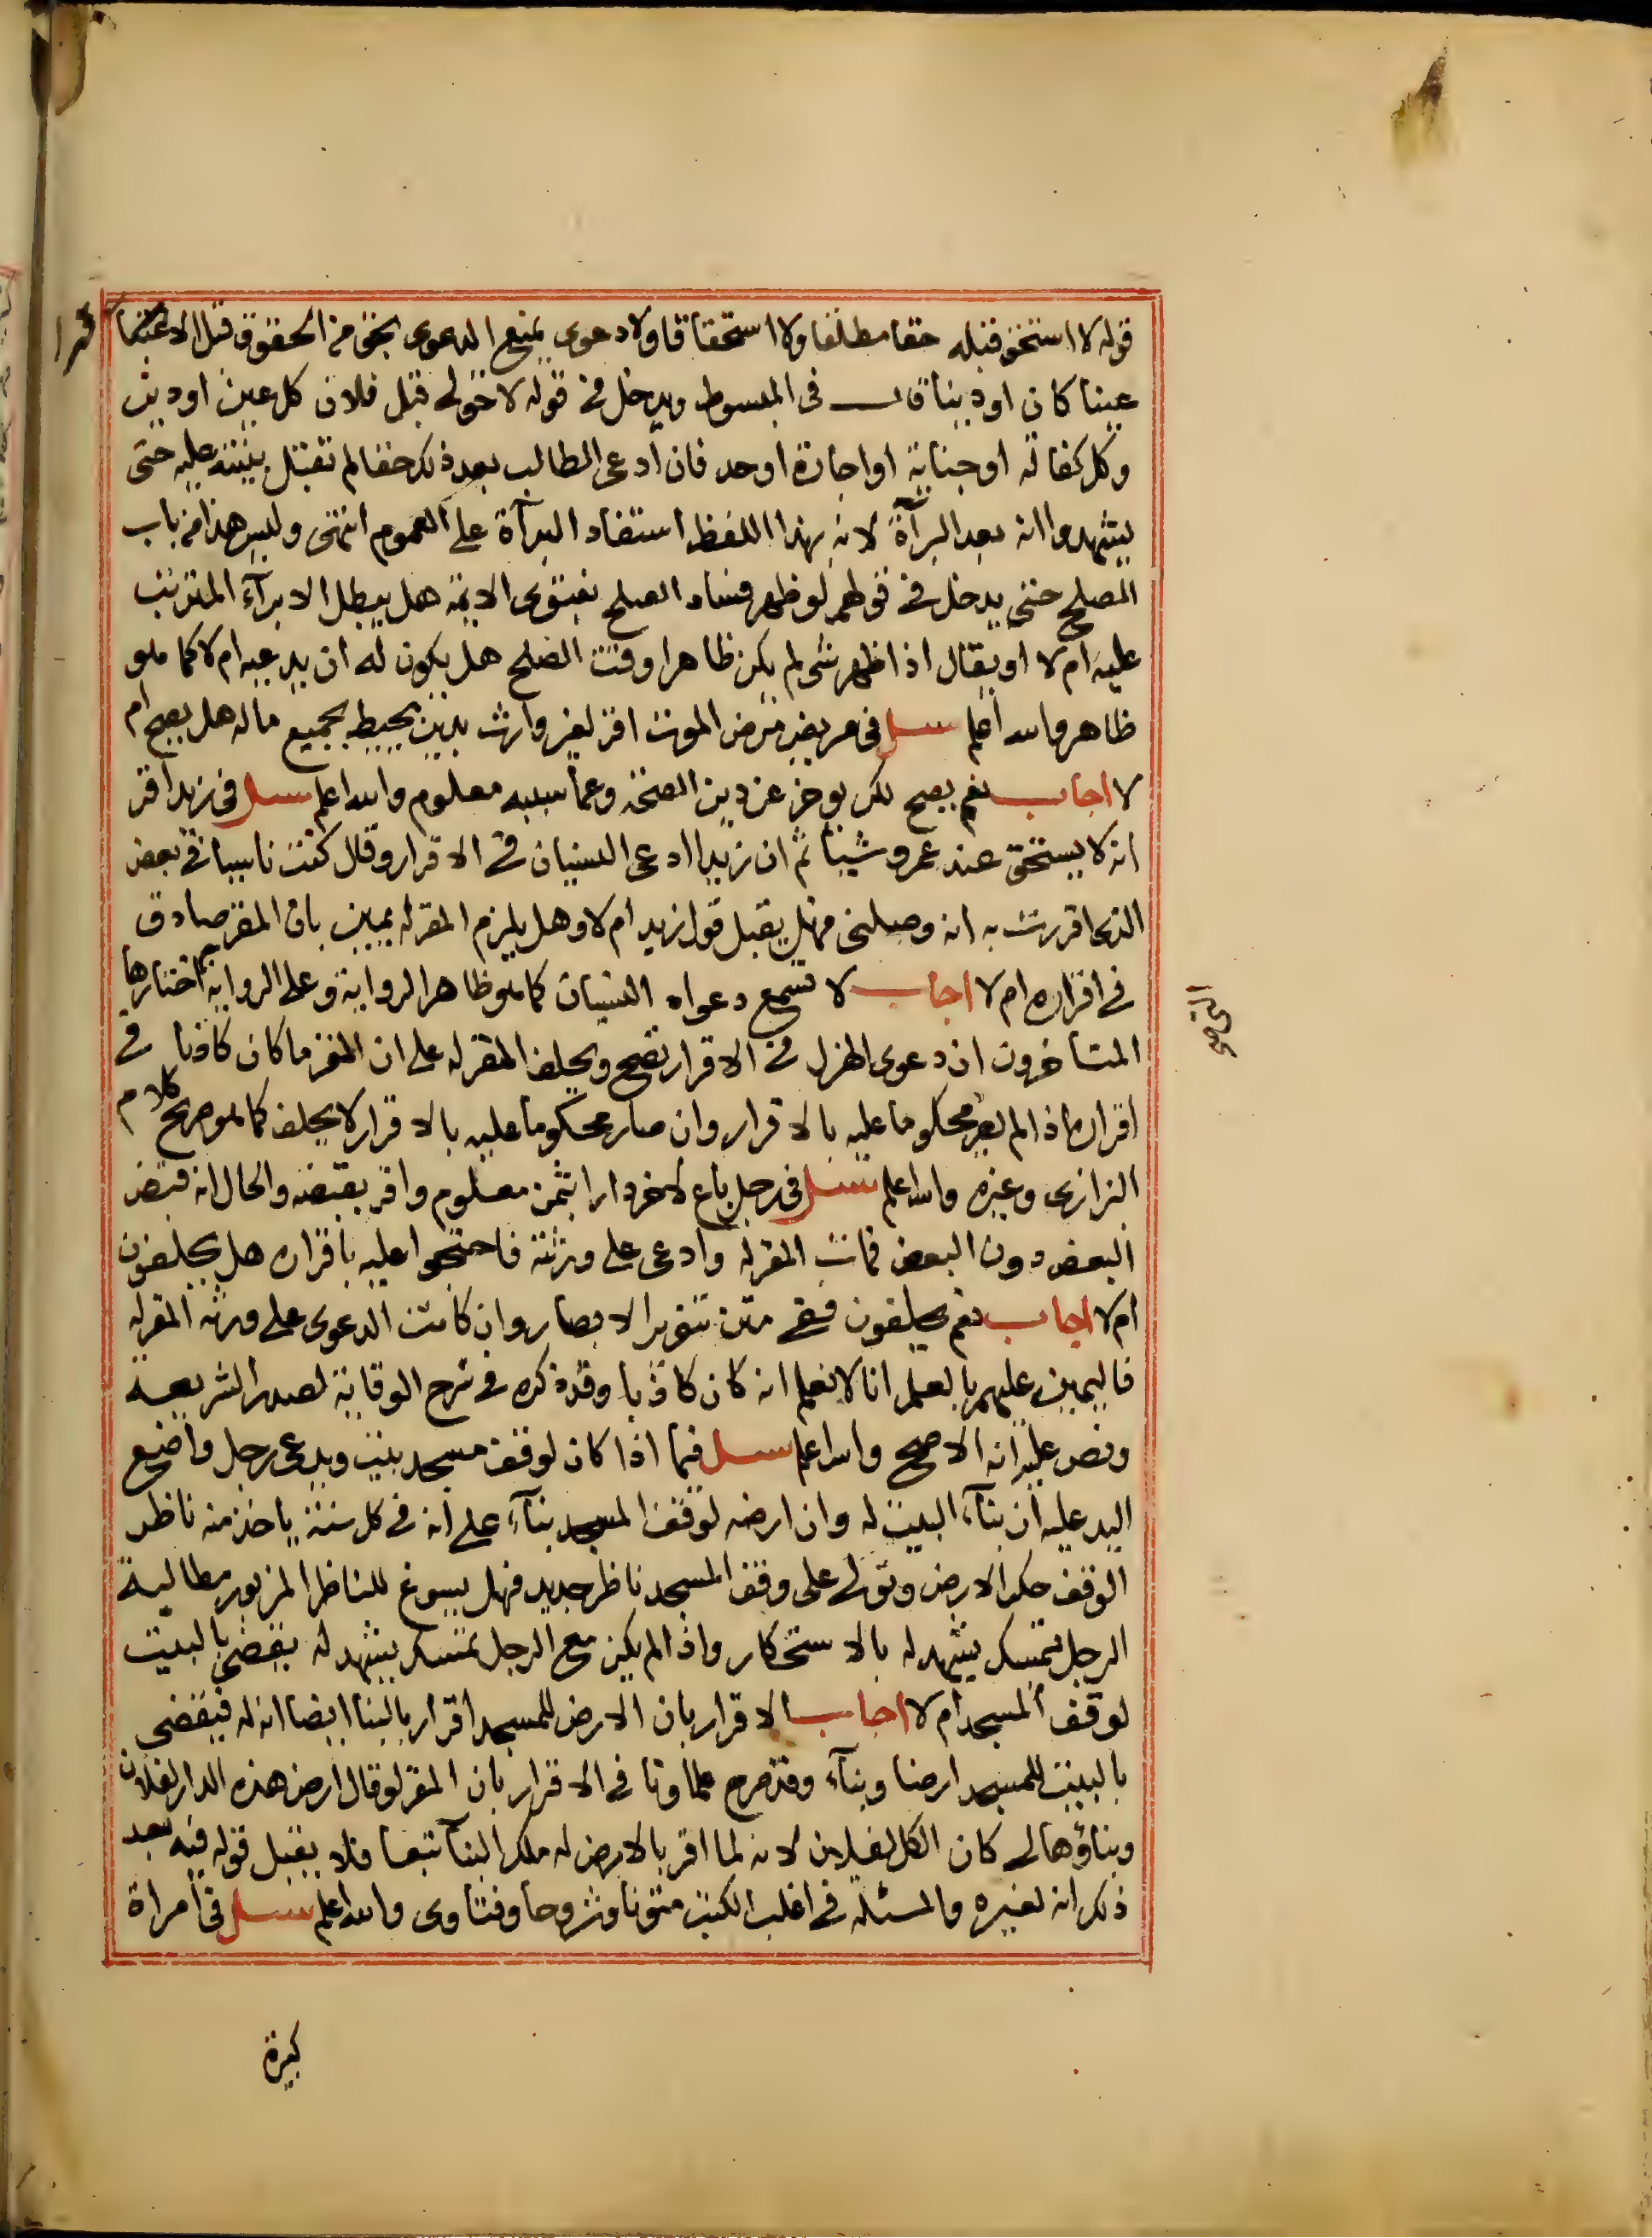 قوله لا استحق قبله حقا مطلقا ولا استحقاقا ولا دعوى يمنع الدعوى بحق من الحقوق قبل الاقرار
عينا كان او دينا قال في المبسوط ويدخل في قوله لا حق لي قبل فلان كل عين او دين
وكل كفالة او جناية او اجارة او حد فان ادعى الطالب بعد ذلك حقا لم تقبل بينته عليه حتى
يشهدوا انه بعد البرآة لانه بهذا اللفظ استفاد البرآة على العموم انتهى وليس هذا من باب
الصلح حتى يدخل في قولهم لو ظهر فساد الصلح بفتوى الايمة هل يبطل الابرآء المترتب
عليه ام لا او يقال اذا ظهر شي لم يكن ظاهرا وقت الصلح هل يكون له ان يدعيه ام لا كما هو
ظاهر والله اعلم سئل في مريض مرض الموت اقر لغير وارث بدين يحيط بجميع ماله هل يصح ام
لا اجاب نعم يصح لكن يوخر عن دين الصحة وعما سببه معلوم والله اعلم سئل في زيد اقر
انه لا يستحق عند عمرو شيا ثم ان زيدا ادعى النسيان في الاقرار وقال كنت ناسيا في بعض
الذي اقررت به انه وصلني فهل يقبل قول زيد ام لا وهل يلزم المقر له يمين بان المقر صادق
في اقراره ام لا اجاب لا تسمع دعواه النسيان كما هو ظاهر الرواية وعلى الرواية التي اختارها
المتاخرون ان دعوى الهزل في الاقرار تصح ويحلف المقر له على ان المقر ما كان كاذبا في
اقراره اذا لم يصر محكوما عليه بالاقرار وان صار محكوما عليه بالاقرار لا يحلف كما هو صريح كلام
البزازي وغيره والله اعلم سئل في رجل باع لاخر دارا بثمن معلوم واقر بقبضه والحال انه قبض
البعض دون البعض فمات المقر له وادعى على ورثته فاحتجوا عليه باقراره هل يحلفون
ام لا اجاب نعم يحلفون ففي متن تنوير الابصار وان كانت الدعوى على ورثة المقر له
فاليمين عليهم بالعلم انا لا نعلم انه كان كاذبا وقد ذكره في شرح الوقاية لصدر الشريعة
ونص عليه انه الاصح والله اعلم سئل فيما اذا كان لوقف مسجد بيت ويدعى رجل واضع
اليد عليه ان بنآء البيت له وان ارضه لوقف المسجد بنآء على انه في كل سنة ياخذ منه ناظر
الوقف حكر الارض وتولى على وقف المسجد ناظر جديد فهل يسوغ للناظر المزبور مطالبة
الرجل بتمسك يشهد له بالاستحكار واذا لم يكن مع الرجل تمسك يشهد له يقضى بالبيت
لوقف المسجد ام لا اجاب الاقرار بان الارض للمسجد اقرار بالبنا ايضا انه له فيقضى
بالبيت للمسجد ارضا وبنآء وقد صرح علماونا في الاقرار بان المقر لو قال ارض هذه الدار لفلان
وبناؤها لي كان الكل لفلان لانه لما اقر بالارض له ملك البنآ تبعا فلا يقبل قوله فيه بعد
ذلك انه لغيره والمسئلة في اغلب الكتب متونا وشروحا وفتاوى والله اعلم سئل في امراة
كبيرة